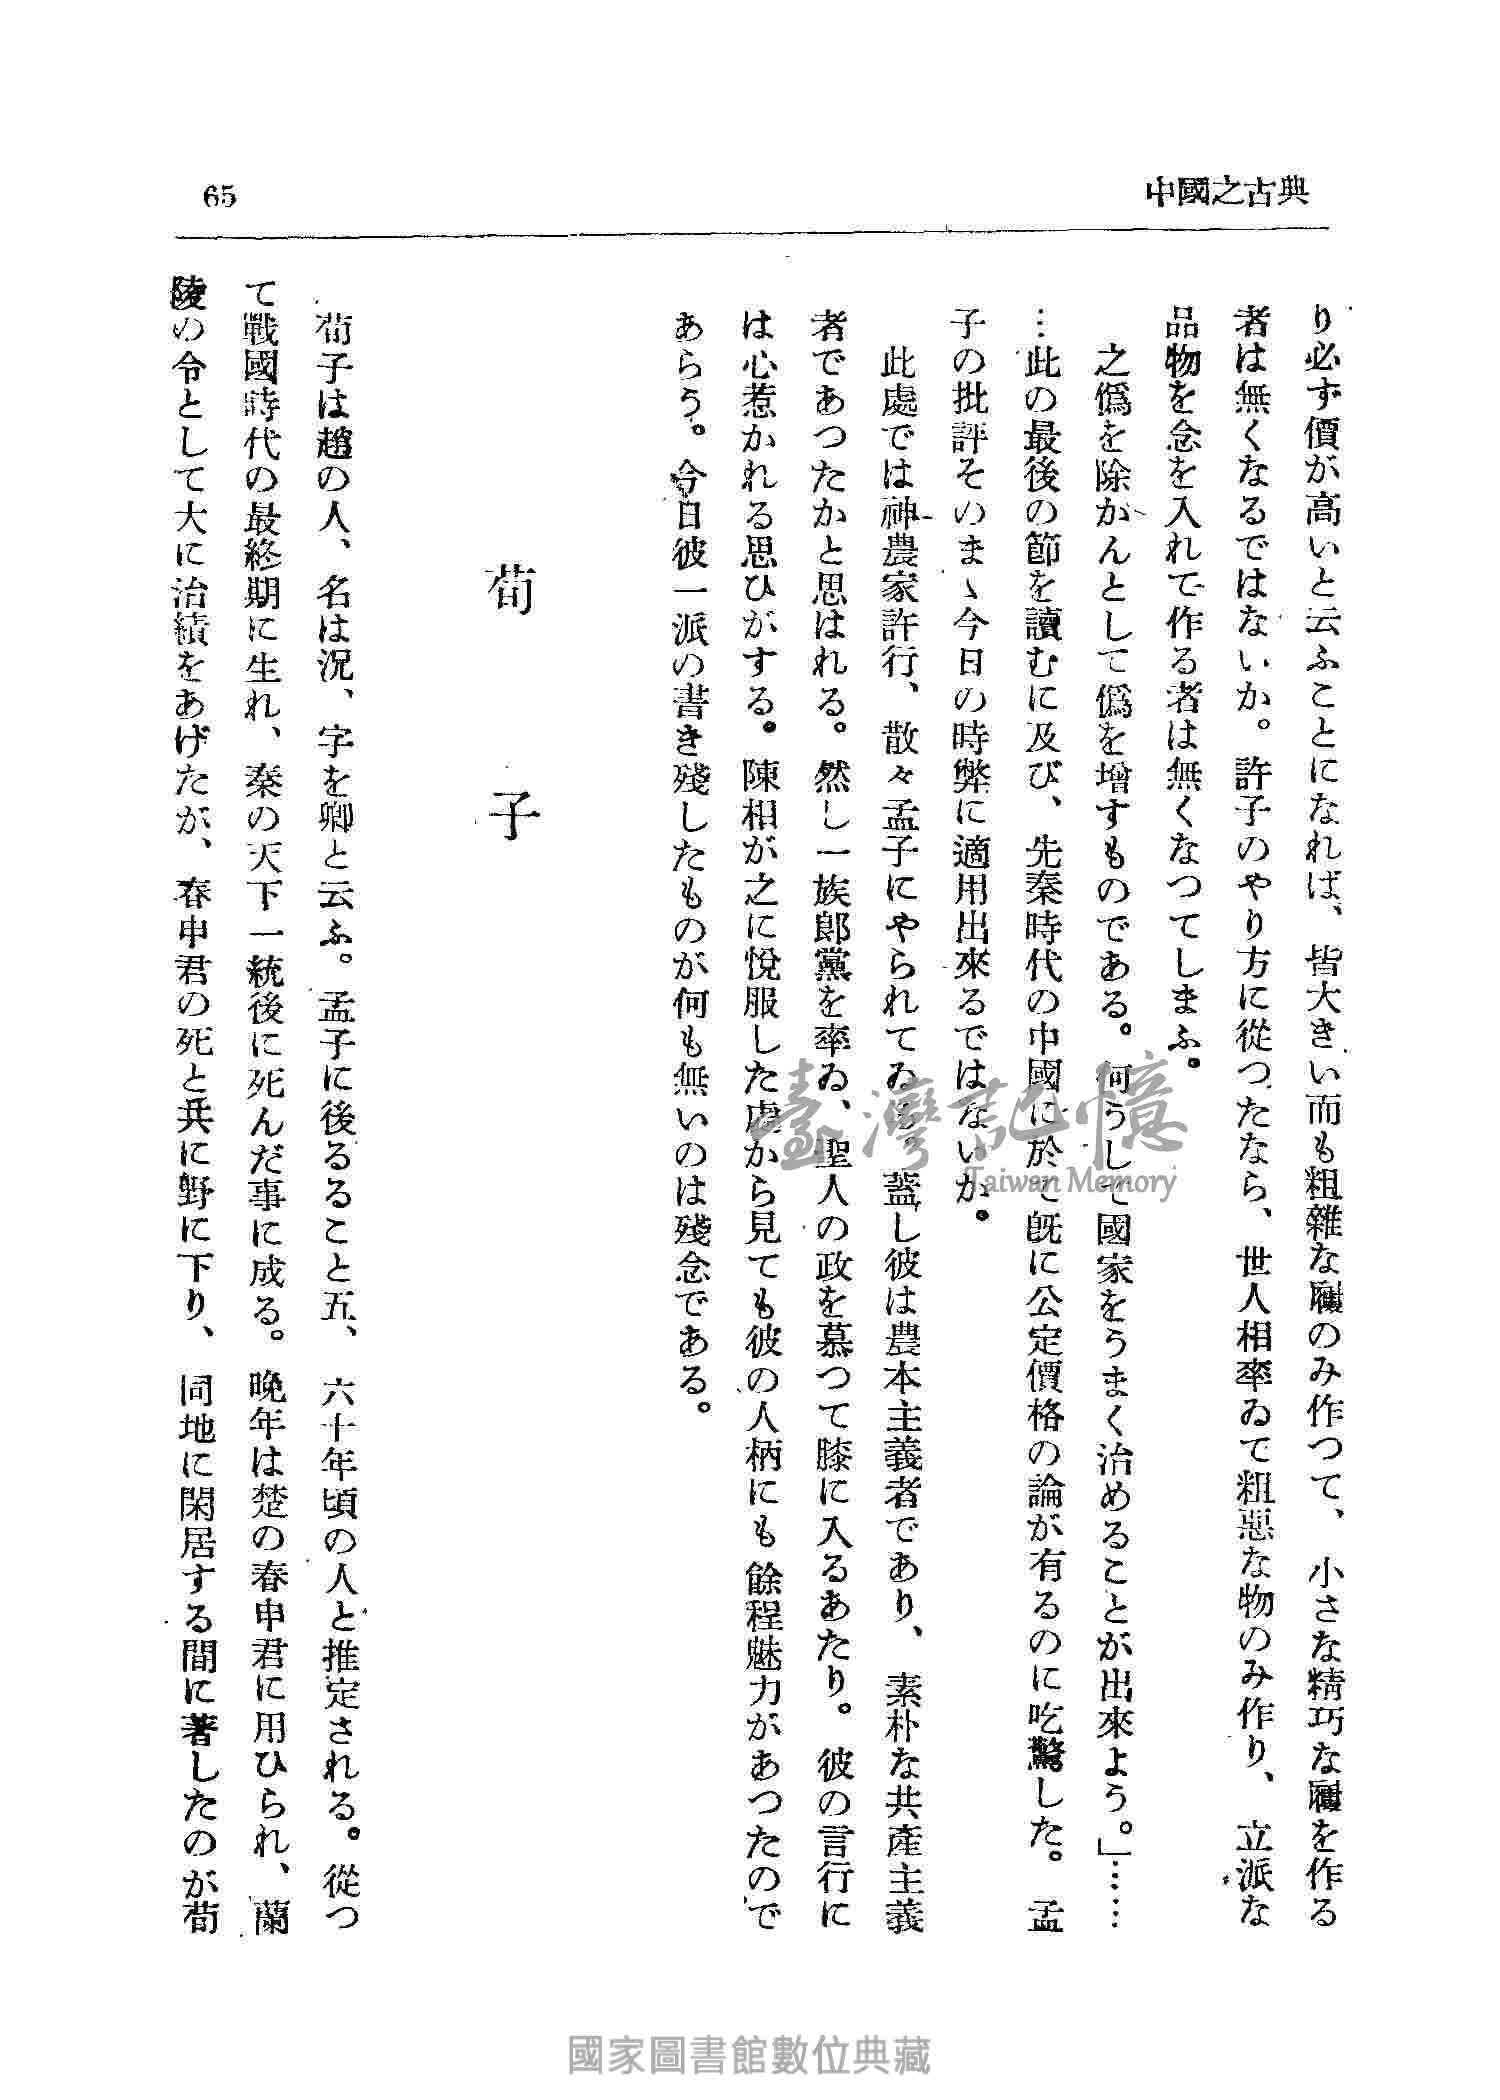 65
中國之古典
り必ず價が高いと云ふことになれば、皆大きい而も粗雜なのみ作つて、小さな精巧なを作る
者は無くなるではないか。許子のやり方に從つたなら、世人相率ゐて粗惡な物のみ作り、立派な
品物を念を入れて作る者は無くなつてしまふ。
之僞を除かんとして僞を增すものである。何うして國家をうまく治めることが出來よう。」……
…此の最後の節を讀むに及び、先秦時代の中國に於て既に公定價格の論が有るのに吃驚した。孟
子の批評そのまゝ今日の時弊に適用出來るではないか。
此處では神農家許行、散々孟子にやられてゐる。蓋し彼は農本主義者であり、素朴な共產主義
者であつたかと思はれる。然し一族郎黨を率ゐ、聖人の政を慕つて膝に入るあたり。彼の言行に
は心惹かれる思ひがする。陳相が之に悅服した處から見ても彼の人柄にも餘程魅力があつたので
あらう。今日彼一派の書き殘したものが何も無いのは殘念である。
荀子
荀子は趙の人、名は況、字を卿と云ふ。孟子に後るること五、六十年頃の人と推定される。從つ
て戰國時代の最終期に生れ、秦の天下一統後に死んだ事に成る。晩年は楚の春申君に用ひられ、蘭
陵の令として大に治績をあげたが、春申君の死と共に野に下り、同地に閑居する間に著したのが荀
臺灣記憶
Taiwan Memory
國家圖書館數位典藏